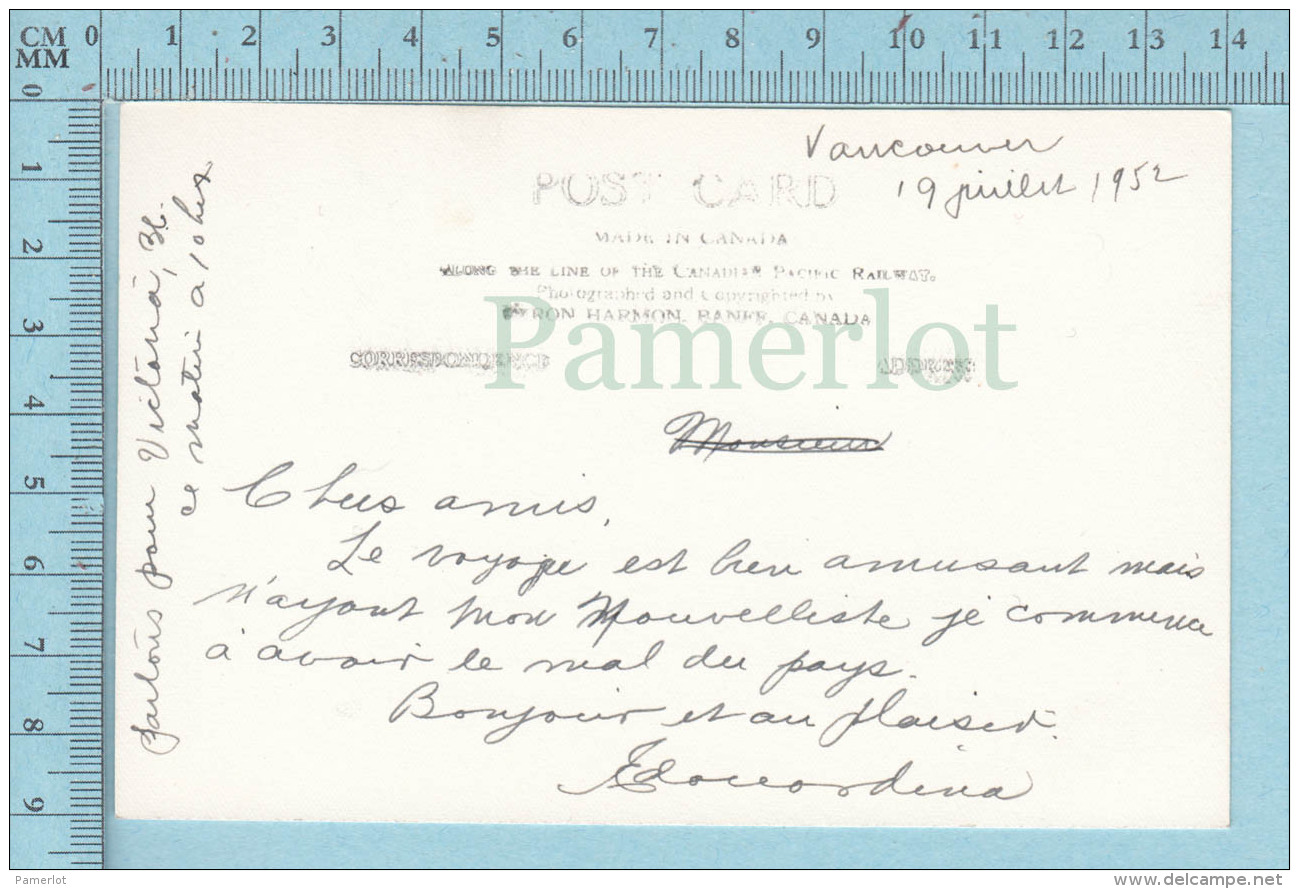 CM 0 1 2 3 4 5 6 7 8 9 10 11 12 13 14
MM
0 1 2 3 4 5 6 7 8 9
Vancouver
19 juillet 1952
POST CARD
MADE IN CANADA
ALONG THE LINE OF THE CANADIAN PACIFIC RAILWAY.
Photographed and Copyrighted by
BYRON HARMON, BANFF, CANADA
CORRESPONDENCE ADDRESS
Pamerlot
Monsieur
Chers amis,
Le voyage est bien amusant mais
n'ayant mon Nouvelliste je commence
à avoir le mal du pays.
Bonjour et au plaisir.
Edouardina
partons pour Victoria,
ce matin à 10 hrs
Pamerlot
delcampe.net